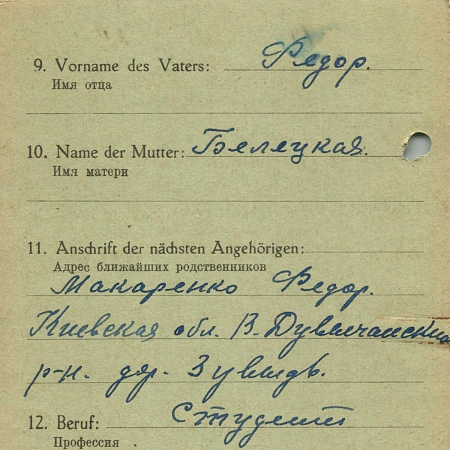 9. Vorname des Vaters: Федор.
Имя отца
10. Name der Mutter: Белецкая.
Имя матери
11. Anschrift der nächsten Angehörigen:
Адрес ближайших родственников
Макаренко Федор.
Киевская обл. В.
р-н. дер.
12. Beruf: Студент
Профессия